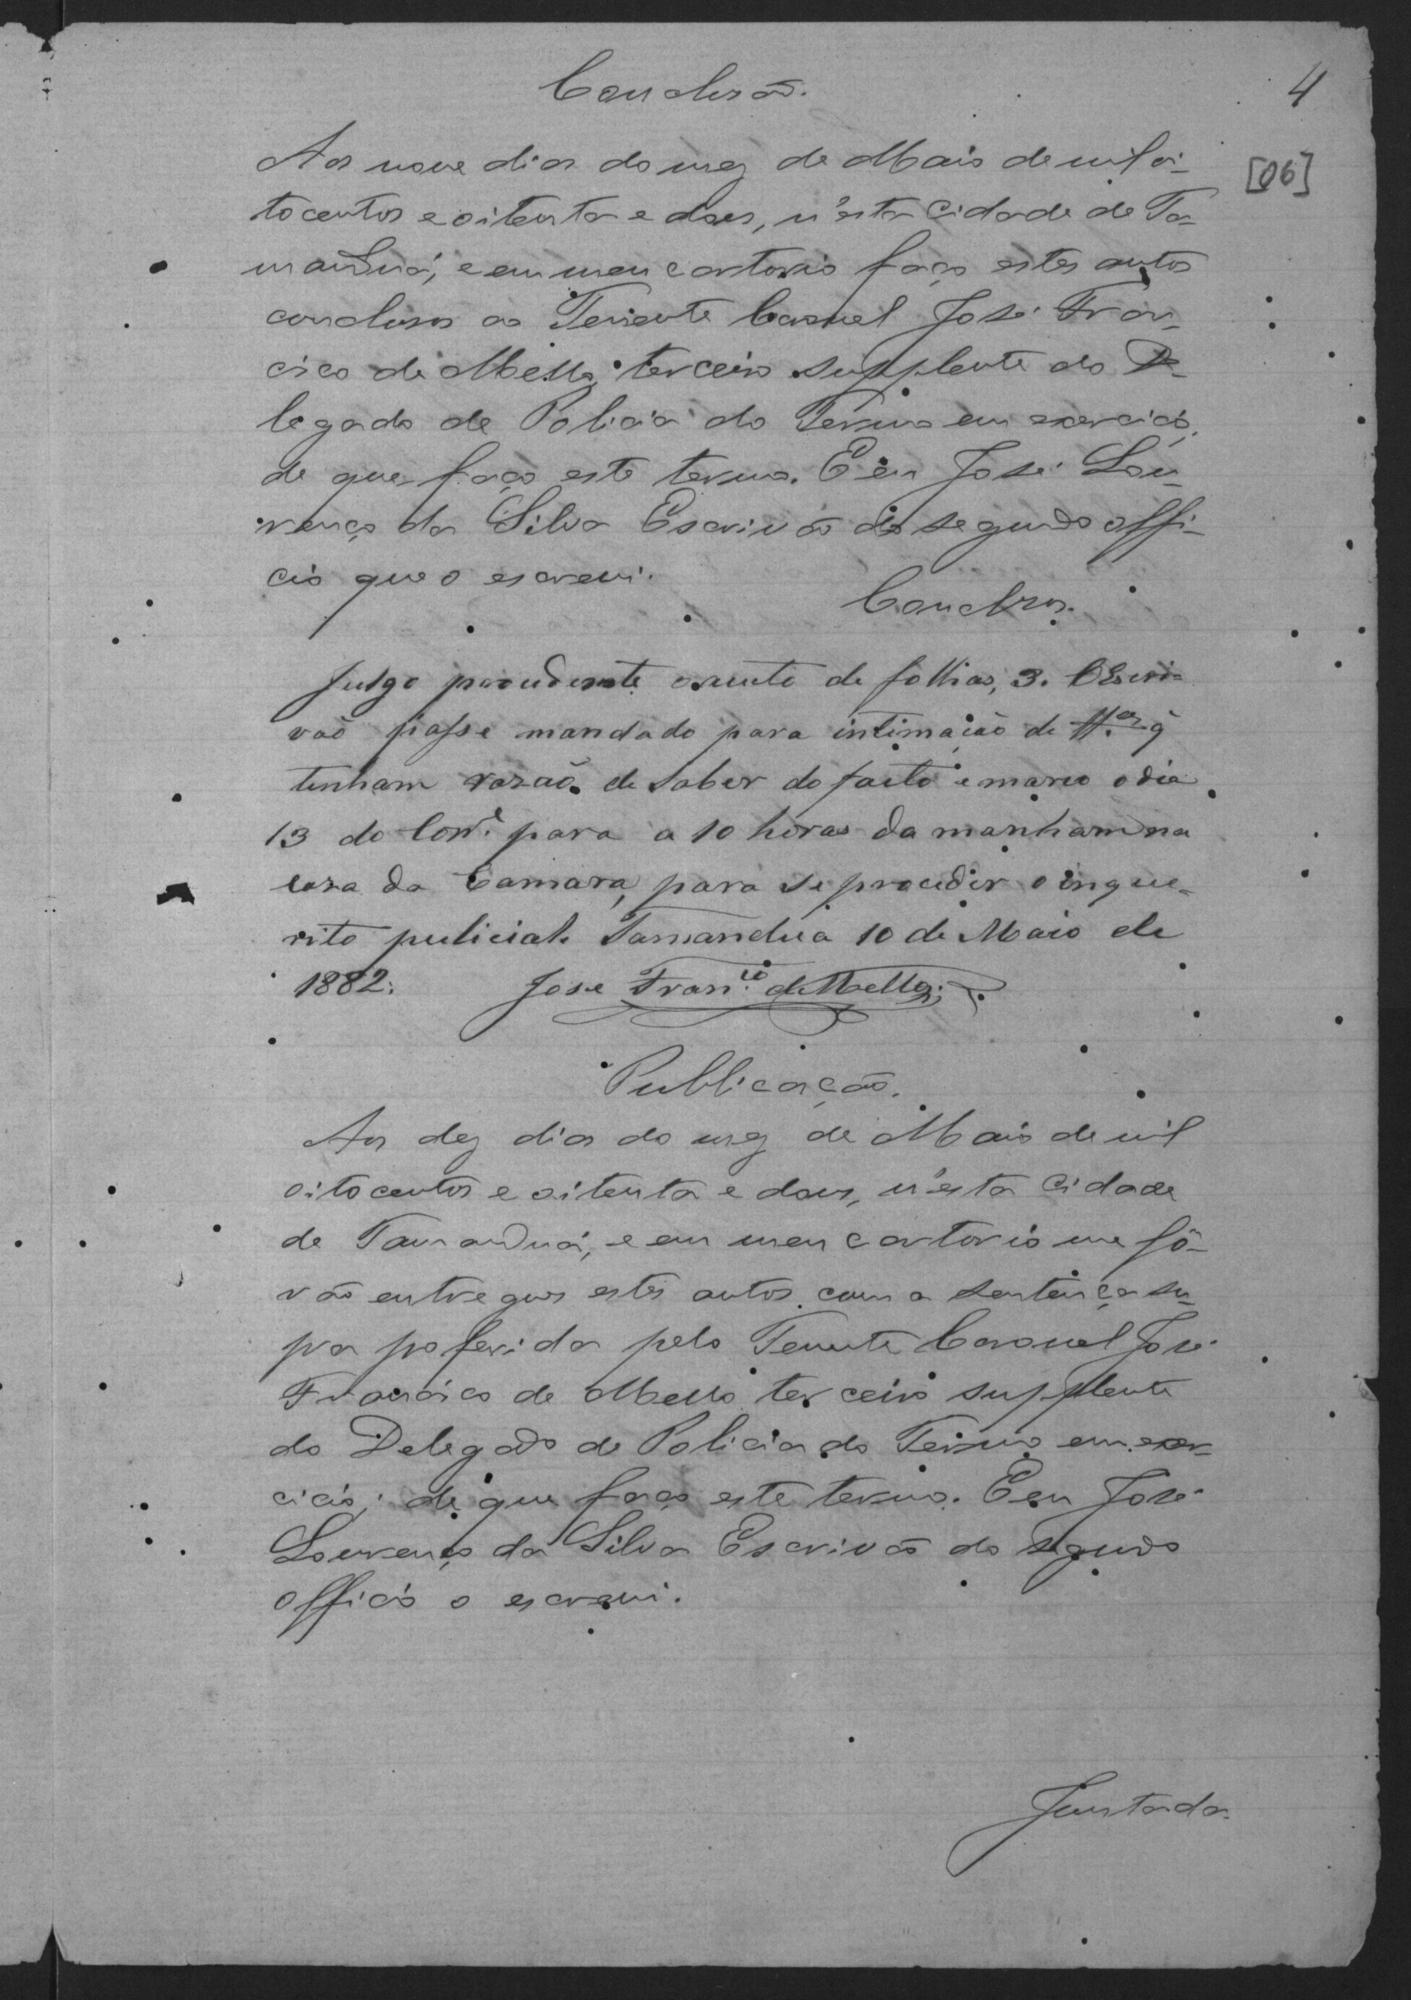 Conclusão.
4
[06]
Aos nove dias do mez de Maio de mil oi-
tocentos e oitenta e dous, n'esta Cidade de Ta-
manduá, e em meu cartorio faço estes autos
conclusos ao Tenente Coronel José Fran-
cisco de Mello terceiro supplente do De-
legado de Policia do Termo em exercicio,
de que faço este termo. E eu José Lou-
renço da Silva Escrivão do segundo offi-
cio que o escrevi.
Conclusos.
Julgo procedente o auto de folhas, 3. O Escri-
vão passe mandado para intimação de tt.as q̃
tenham razaõ de saber do facto e marco o dia
13 do Corr.e para a 10 horas da manham na
caza da Camara, para se proceder o inque-
rito pulicial. Tamandua 10 de Maio de
1882. Jose Fran.co de Mello
Publicação.
Aos dez dias do mez de Maio de mil
oitocentos e oitenta e dous, n'esta cidade
de Tamanduá, e em meu cartorio me fô-
rão entregues estes autos com a sentença su-
pra proferida pelo Tenente Coronel José
Francisco de Mello terceiro supplente
do Delegado de Policia do Termo em exer-
cicio; de que faço este termo. E eu José
Lourenço da Silva Escrivão do segundo
officio o escrevi.
Juntada.